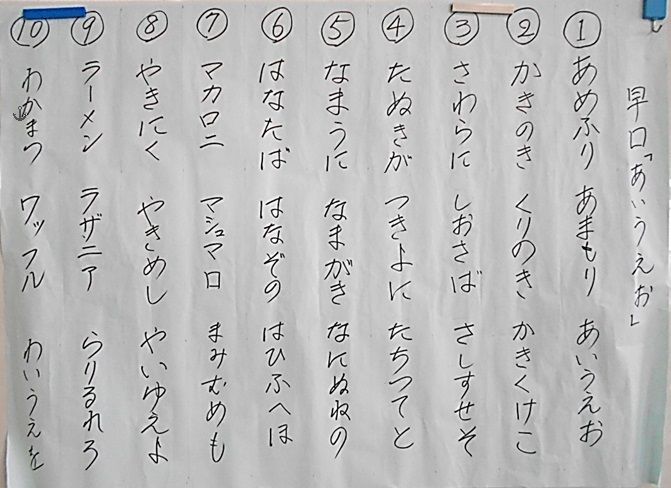 早口「あいうえお」
① あめふり あまもり あいうえお
② かきのき くりのき かきくけこ
③ さわらに しおさば さしすせそ
④ たぬきが つきよに たちつてと
⑤ なまうに なまがき なにぬねの
⑥ はなたば はなぞの はひふへほ
⑦ マカロニ マシュマロ まみむめも
⑧ やきにく やきめし やいゆえよ
⑨ ラーメン ラザニア らりるれろ
⑩ わかまつ ワッフル わいうえを